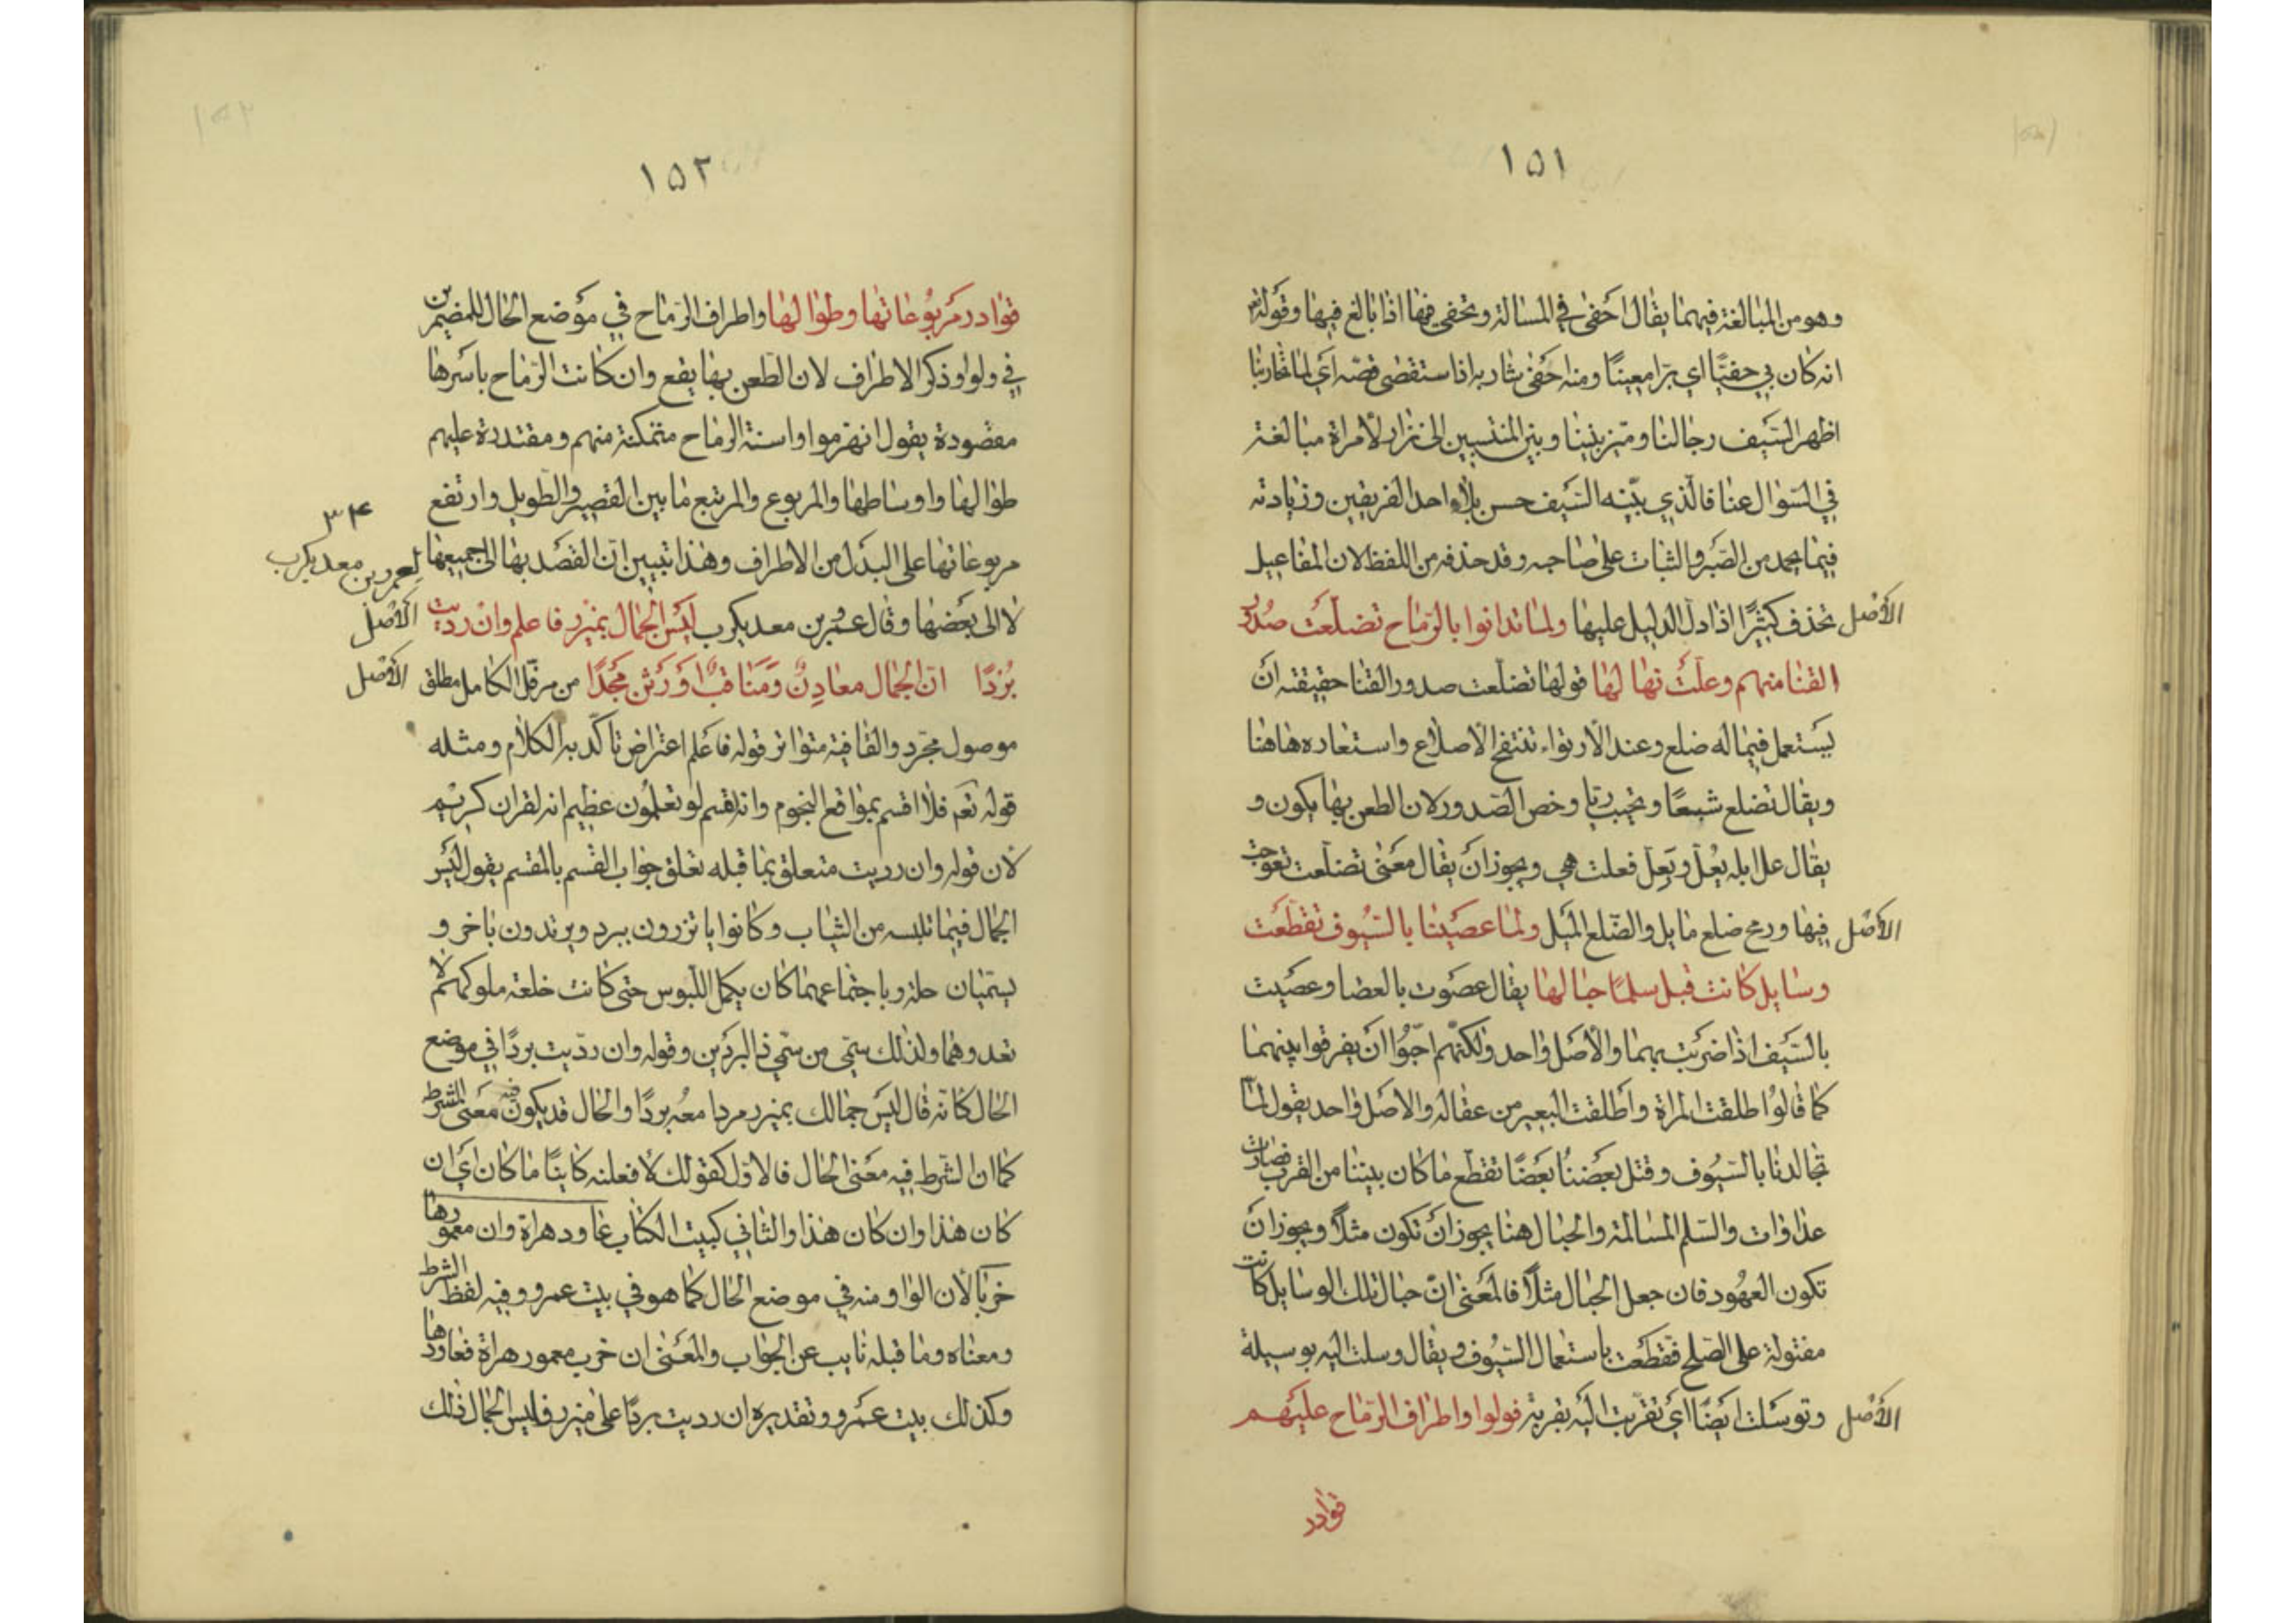 ١٥١
وهو من المبالغة فيهما يقال احفى في المسالة وتحفى فيها اذا بالغ فيها وقوله تعالى
انه كان بي حفيًّا اي برا معينًا ومنه احفى شاربه اذا استقصى قصه اي لما تحاربنا
اظهر السَّيف رجالنا وميّز بيننا وبين المنتسبين الى نزار لأمراة مبالغة
في السّوال عنا فالّذي بيّنه السَّيف حسن بلاء احد الفريقين وزيادته
فيما يحمد من الصّبر والثبات على صاحبه وقد حذفه من اللفظ لان المفاعيل
الأصْل تحذف كثيرًا اذا دلّ الدليل عليها ولما تدانوا بالرّماح تضلّعَتْ صُدُور
القنا منهم وعلَّتْ نهالها قولها تضلّعت صدور القنا حقيقته انَ
يَستعمل فيما له ضلع وعند الأرتواء تنتفخ الأضلاع واستعاره هاهنا
ويقال تضلع شبعًا وتحبب ريا وخص الصّدور لان الطعن بها يكون و
يقال علّ ابله يعُلّ ويَعِلّ فعلت هي ويجوز انَ يقال معَنى تضلّعت تعوّجت
الأصْل فيها ورمح ضلع مايل والضّلع المَيل ولما عصَينا بالسّيُوف تقطّعَت
وسايل كانت قبل سلمًا حبالها يقال عصَوت بالعصا وعصَيت
بالسَّيف اذا ضربَت بهما والأصَل واحد ولكنّهم احبّوُا انَ يفرقوا بينهما
كما قالوُا طلقت المراة وأطلقت البعير من عقاله والاصَل واحد يقول لمّا
تجالدنا بالسّيُوف وقتل بعَضنُا بعَضًا تقطّع ما كان بيننا من القرب فصارت
عداوات والسّلم المسالمة والحبال هنا يجوز انَ تكون مثلاً ويجوز انَ
تكون العهُود فان جعل الحبال مثلاً فالمعَنى انّ حبال تلك الوسايل كانت
مفتولة على الصّلح فقطّعَت باستعمال السّيُوف ويقال وسلت اليه بوسيلة
الأصْل وتوسَّلت ايضًا ايَ تقرّبت اليَه بقربة فولوا واطراف الرّماح عليَهم
قوادر
١٥٢
قوادر مَربُوعاتها وطوالها واطراف الرّماح في موَضع الحال للمضمرين
في ولوا وذكر الاطراف لان الطّعن بها يقع وان كانت الرّماح باسَرها
مقصُودة يقول انهزموا واسنة الرماح متمكنة منهم ومقتدرة عليهم
طوالها واوساطها والمربوع والمرتبع ما بين القصير والطّويل وارتفع
٣٤
مربوعاتها على البدَل من الاطراف وهذا تبيين انّ القصَد بها الى جميعها
لعمرو بن معد يكرب
لا الى بعَضها وقال عمرو بن معد يكرب ليَس الجمال بمئزر فاعلم وانْ ردّيت الأصْل
بُردًا انّ الجمال معادِنٌ وَمَناقبٌ اوَرَثن مَجدًا من مرفّل الكامل مطلق الأصْل
موصول مجرّد والقافية متواتر قوله فاعلم اعتراض تاكّد به الكلام ومثله
قوله تعَم فلا اقسم بمواقع النجوم وانه لقسم لو تعلموُن عظيم انه لقران كريم
لان قوله وان رديت متعلق بما قبله تعلق جواب القسم بالمقسم يقول ليَس
الجمال فيما تلبسه من الثياب وكانوا ياتزرون ببرد ويرتدون باخر و
يسمّيان حلة وباجتماعهما كان يكمل اللّبوس حتى كانت خلعة ملوكهم لا
تعدوهما ولذلك سمّي من سمّي ذا البردَين وقوله وان ردّيت بردًا في موضع
الحال كانه قال ليَس جمالك بمئزر مردا معهُ بردًا والحال قد يكون فيه معَنى الشرط
كما ان الشّرط فيه معَنى الحال فالاوّل كقولك لأفعلنه كاينًا ما كان ايَ ان
كان هذا وان كان هذا والثاني كبيت الكتاب عاود هراة وان معمورها
خربا لأن الواو منه في موضع الحال كما هو في بيت عمرو وفيه لفظ الشرط
ومعناه وما قبله نايب عن الجواب والمعَنى ان خرب معمور هراة فعاودها
وكذلك بيت عمَرو وتقديره ان رديت بردًا على مئزر فليس الجمال ذلك